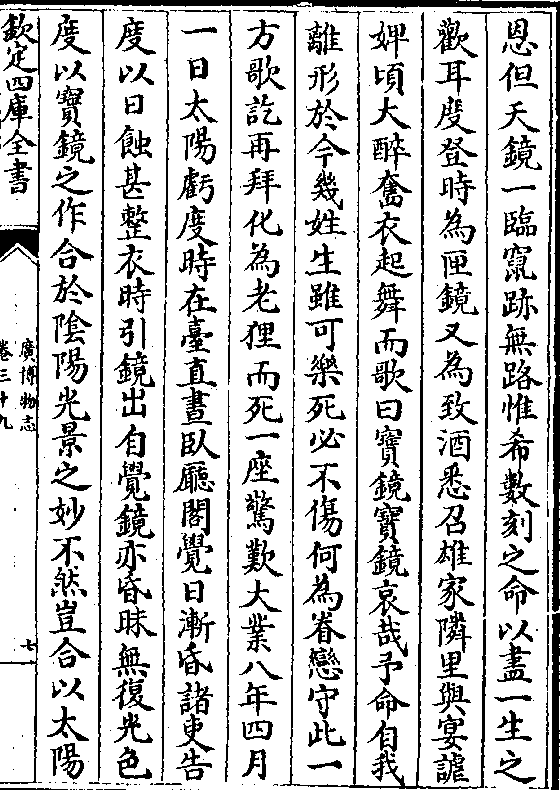 恩但天鏡一臨竄跡無路惟希數刻之命以盡一生之
歡耳度登時為匣鏡又為致酒悉召雄家隣里與宴謔
婢頃大醉奮衣起舞而歌曰寶鏡寶鏡哀哉予命自我
離形於今幾姓生雖可樂死必不傷何為眷戀守此一
方歌訖再拜化為老狸而死一座驚歎大業八年四月
一日太陽虧度時在臺直晝臥廳閣覺日漸昏諸吏告
度以日蝕甚整衣時引鏡出自覺鏡亦昏昧無復光色
度以寶鏡之作合於陰陽光景之妙不然豈合以太陽
欽定四庫全書
廣博物志
卷三十九
七